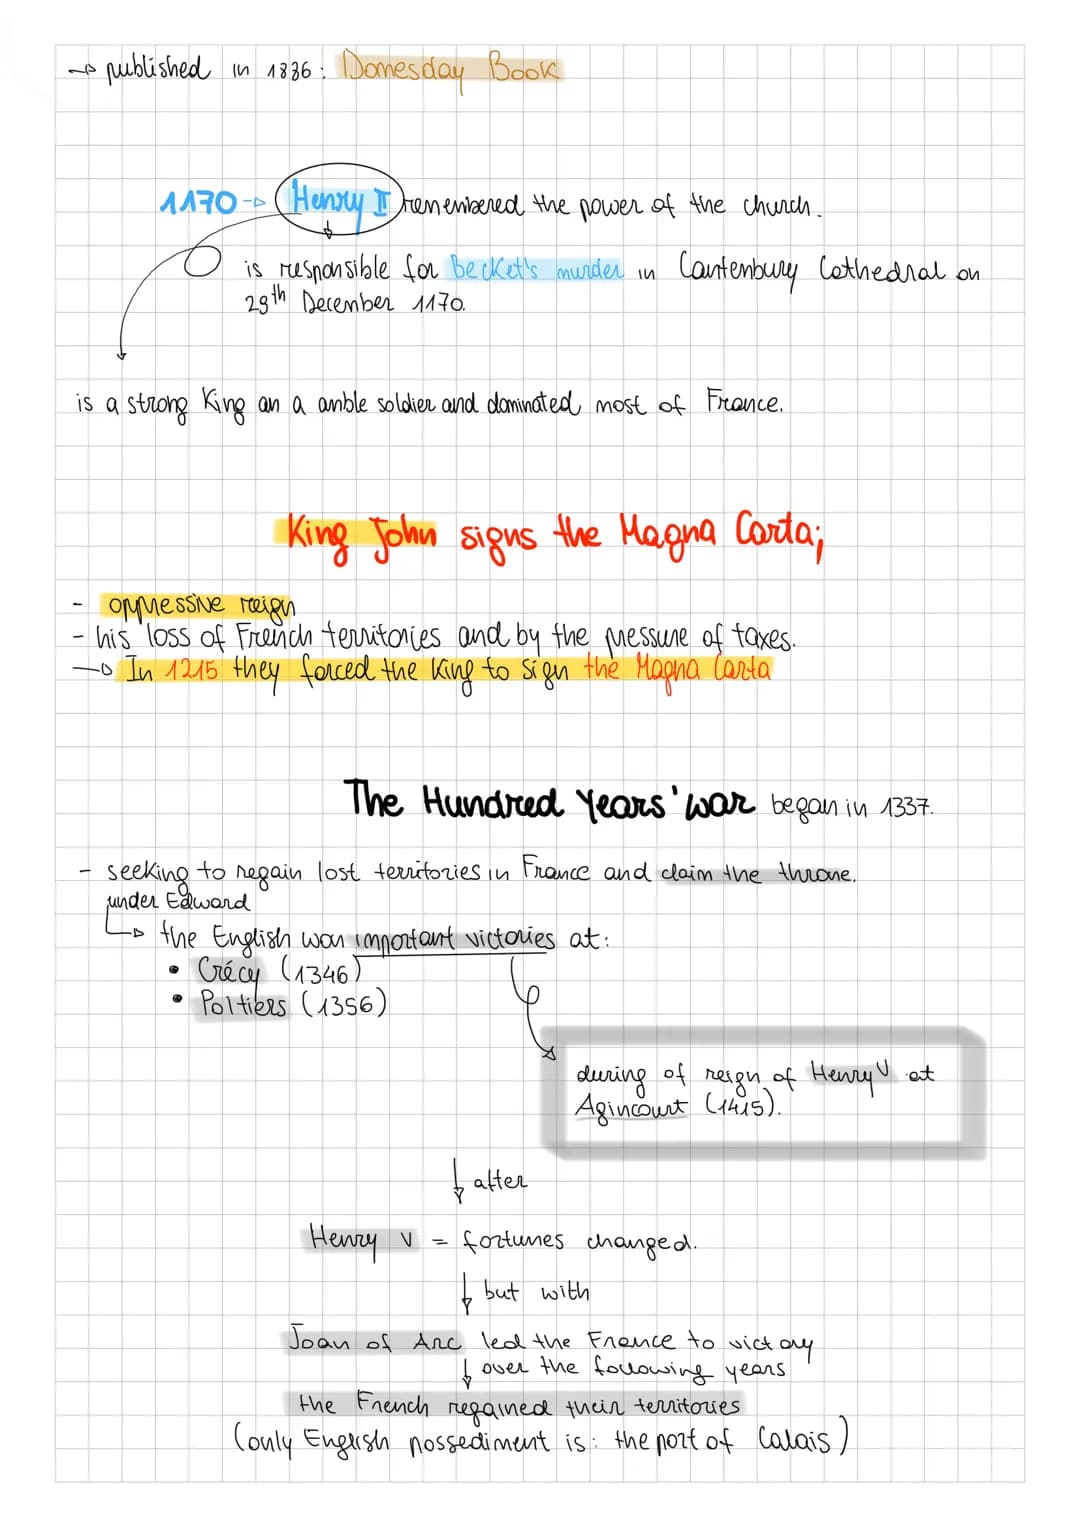 → published in 1836: Domesday Book
1170 → Henry II remembered the power of the church.
is responsible for Becket's murder in Cantenbury Cathedral on
29th December 1170.
is a strong King an a amble soldier and dominated most of France.
King John signs the Magna Carta;
- oppressive reign
- his loss of French territories and by the pressure of taxes.
→ In 1215 they forced the King to sign the Magna Carta
The Hundred Years' war began in 1337.
- seeking to regain lost territories in France and claim the throne.
under Edward
→ the English won important victories at:
• Crécy (1346)
• Poitiers (1356)
during of reign of Henry V at
Agincourt (1415).
↓ after
Henry V = fortunes changed.
↓ but with
Joan of Arc led the France to victory
↓ over the following years
the French regained their territories
(only English possediment is: the port of Calais)